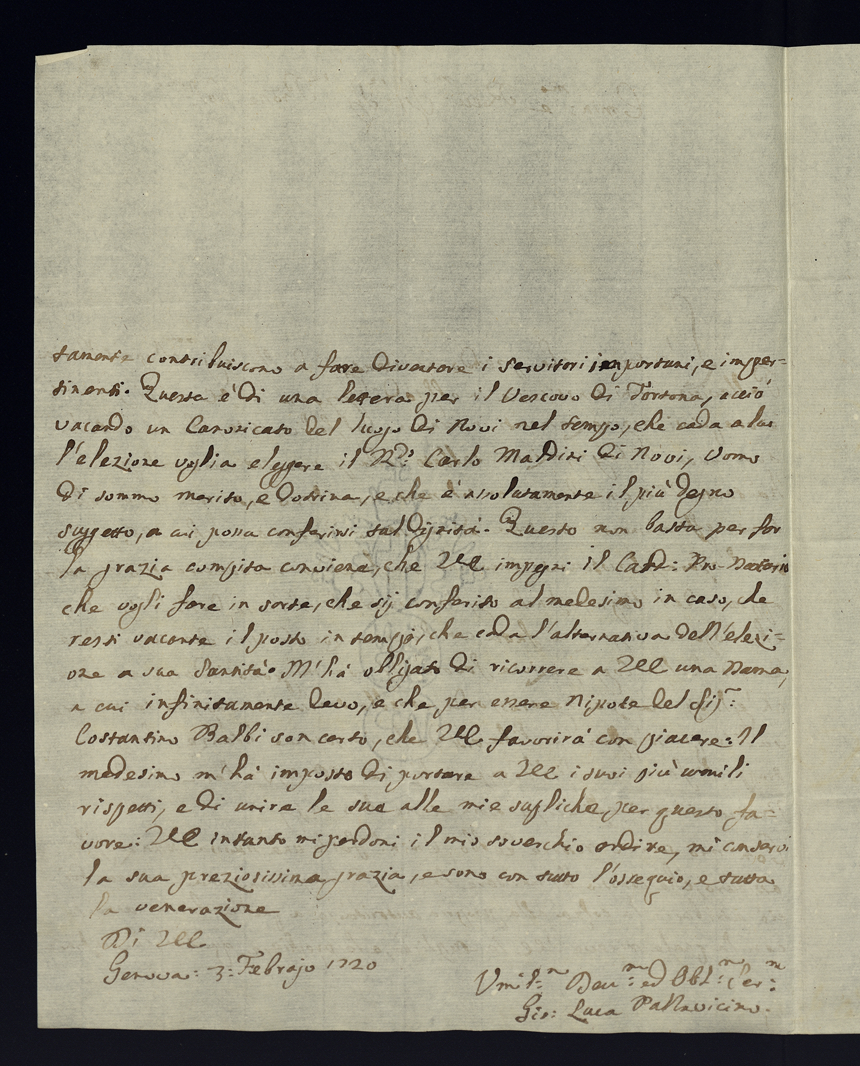 tamente contribuiscono a fare diventare i servitori importuni, e imper=
tinenti. Questa è di una lettera per il Vescovo di Tortona, acciò
vacando un Canonicato del luogo di Novi nel tempo, che cada a lui
l'elezione voglia eleggere il R.do Carlo Maldini di Novi, Uomo
di sommo merito, e dottrina, e che è assolutamente il più degno
suggetto, a cui possa conferirsi tal dignità. Questo non basta per far
la grazia compita conviene, che VE impegni il Card: Pro-Datario
che vogli fare in sorte, che sij conferito al medesimo in caso, che
resti vacante il posto in tempo, che cada l'alternativa dell'elezi=
one a sua Santità. M'hà obligato di ricorrere a VE una Dama,
a cui infinitamente devo, e che per essere Nipote del Sig.r:
Costantino Balbi son certo, che VE favorirà con piacere: Il
medesimo m'hà imposto di portare a VE i suoi più umili
rispetti, e di unire le sue alle mie supliche, per questo fa=
vore: VE intanto mi perdoni il mio soverchio ardire, mi conservi
la sua preziosissima grazia, e sono con tutto l'ossequio, e tutta
la venerazione
Di VE
Genova: 3: Febrajo 1720
Umil:mo Dev:mo ed Obl:mo Ser:
Gio: Luca Pallavicino.